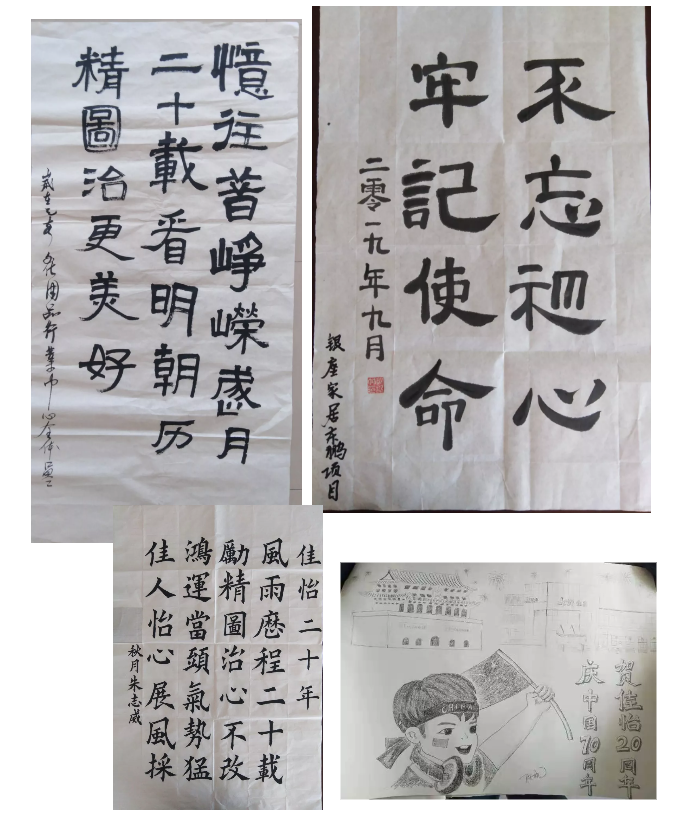 憶往昔崢嶸歲月
二十載看明朝历
精圖治更美好
歲在己亥
品行業中心全体員工
不忘初心
牢記使命
二零一九年九月
银座家居东鹏项目
佳怡二十年
風雨歷程二十載
勵精圖治心不改
鴻運當頭氣勢猛
佳人怡心展風採
秋月朱志威
贺佳怡20周年
庆中国70周年
CHINA